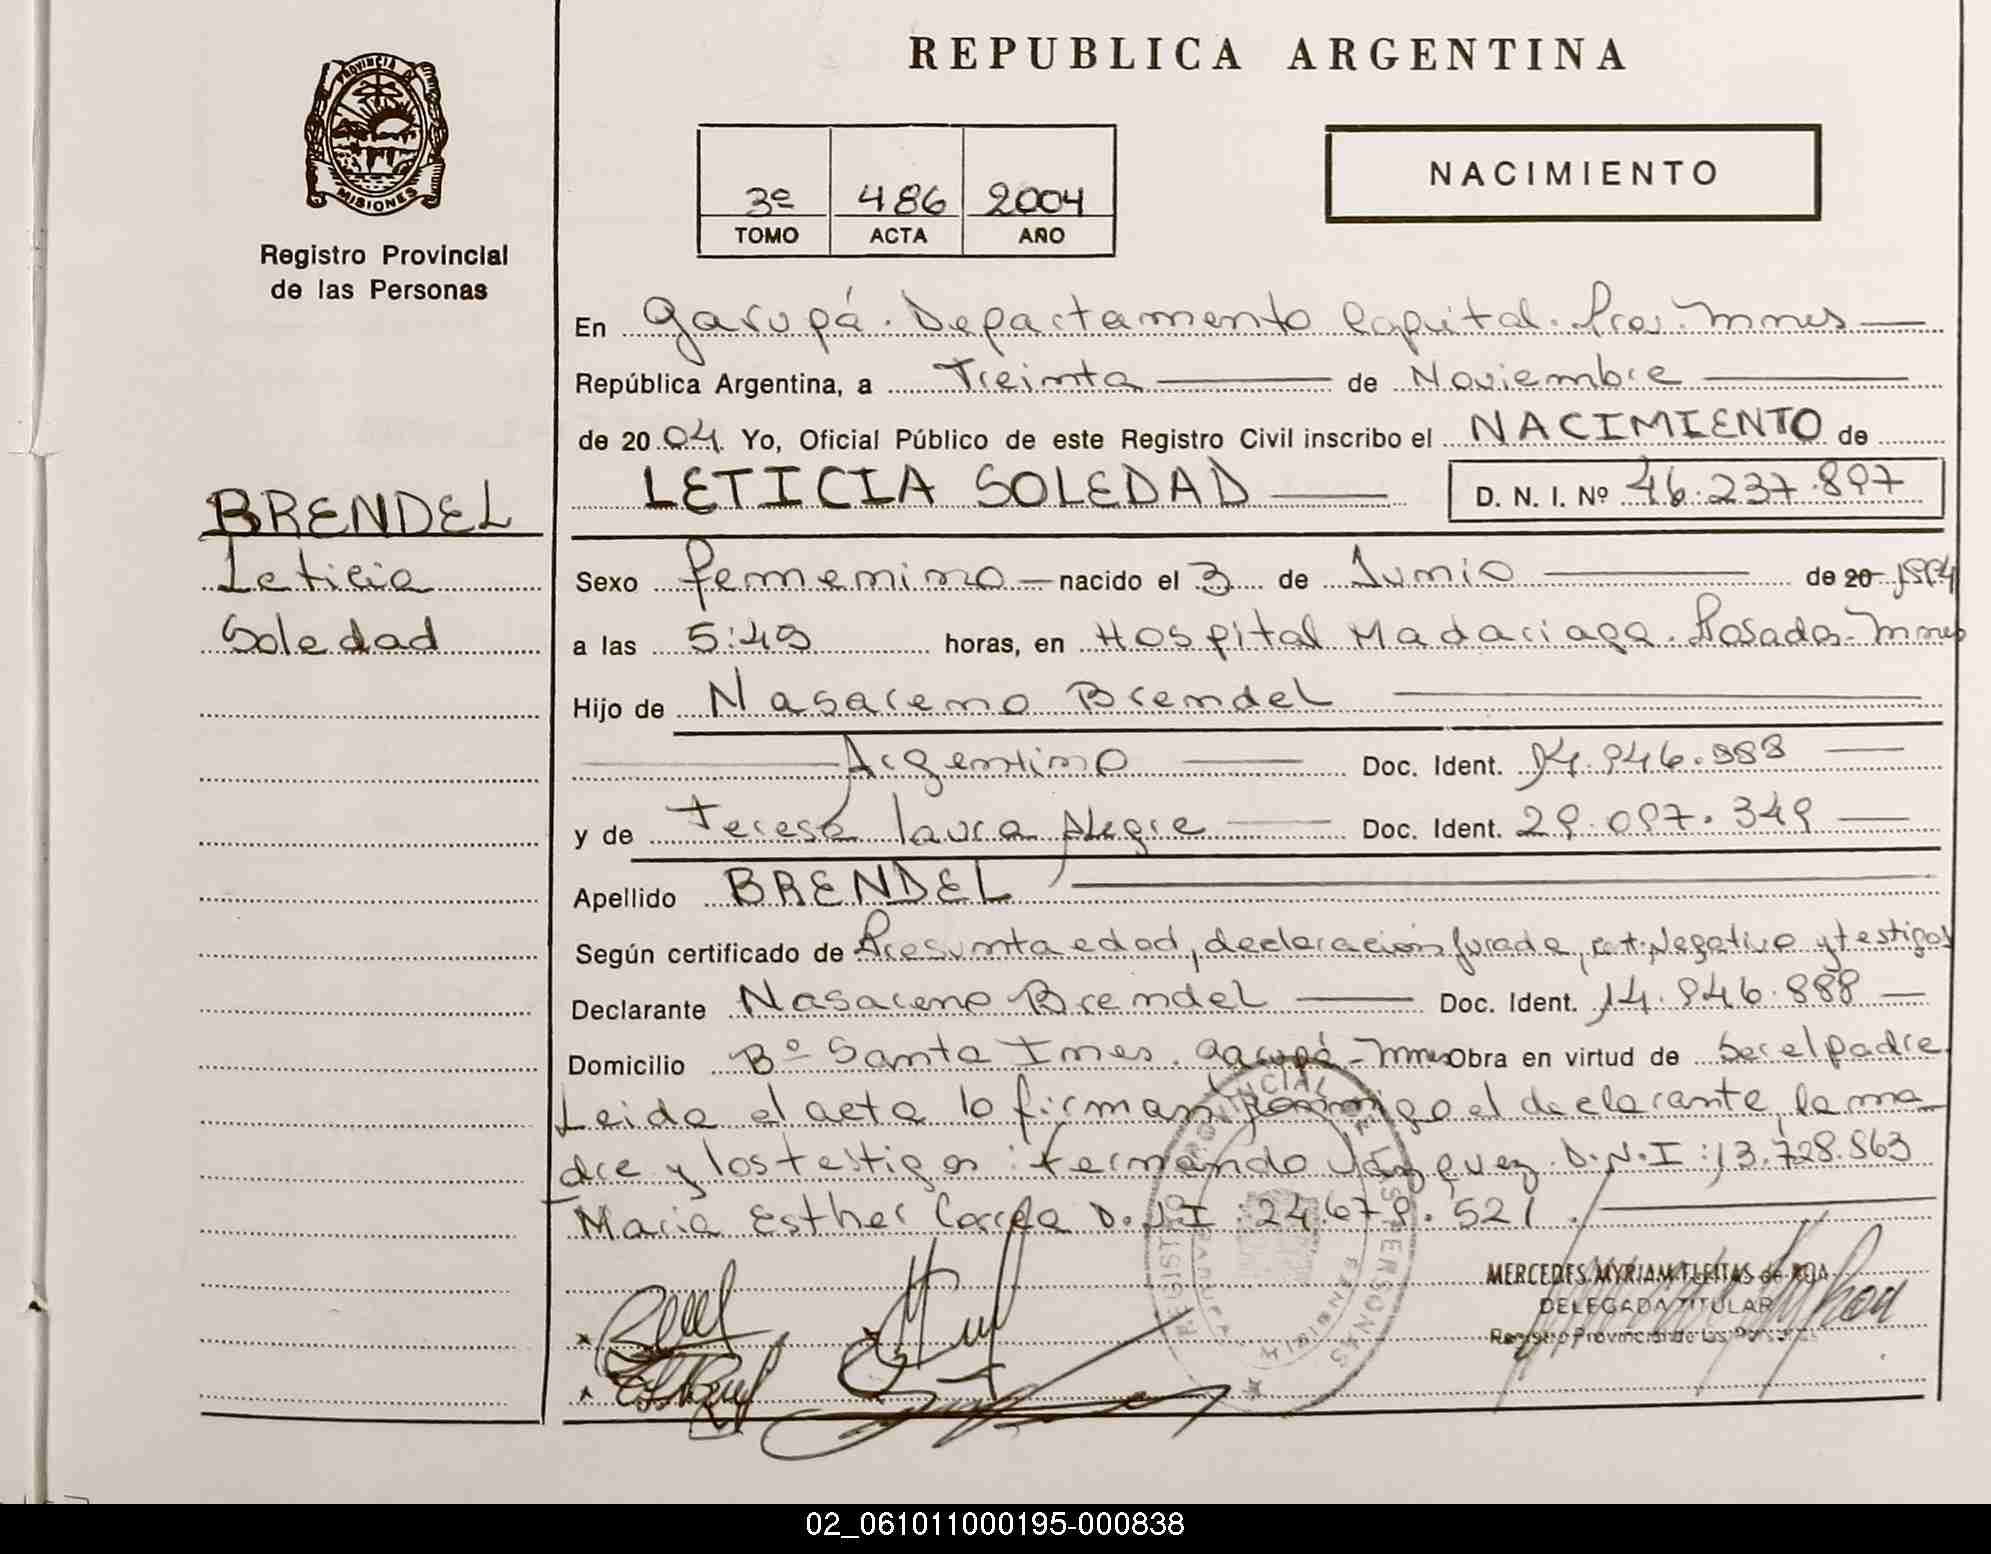 REPUBLICA ARGENTINA
PROVINCIA DE MISIONES
Registro Provincial
de las Personas
3º 486 2004
TOMO ACTA AÑO
NACIMIENTO
En Garupá. Departamento Capital. Pcia. Mnes
República Argentina, a Treinta de Noviembre
de 20 04 Yo, Oficial Público de este Registro Civil inscribo el NACIMIENTO de
LETICIA SOLEDAD D. N. I. Nº 46.237.897
BRENDEL
Leticia
Soledad
Sexo femenino nacido el 3 de Junio de 20
a las 5:45 horas, en Hospital Madariaga. Posadas-Mnes
Hijo de Nasareno Brendel
Argentino Doc. Ident.
y de Teresa laura Alegre Doc. Ident. 29.097.349
Apellido BRENDEL
Según certificado de Presunta edad, declaración jurada, cert. Negativo y testigos
Declarante Nasareno Brendel Doc. Ident. 14.946.888
Domicilio Bº Santa Ines. Garupá-Mnes Obra en virtud de ser el padre
Leida el acta lo firman conmigo el declarante, la ma
dre y los testigos: fernando Vázquez D.N.I: 13.728.563
Maria Esther Correa D.N.I: 24.679.521
REGISTRO PROVINCIAL DE LAS PERSONAS
GARUPA
MISIONES
MERCEDES MYRIAM FLEITAS de ROA
DELEGADA TITULAR
Registro Provincial de las Personas
02_061011000195-000838